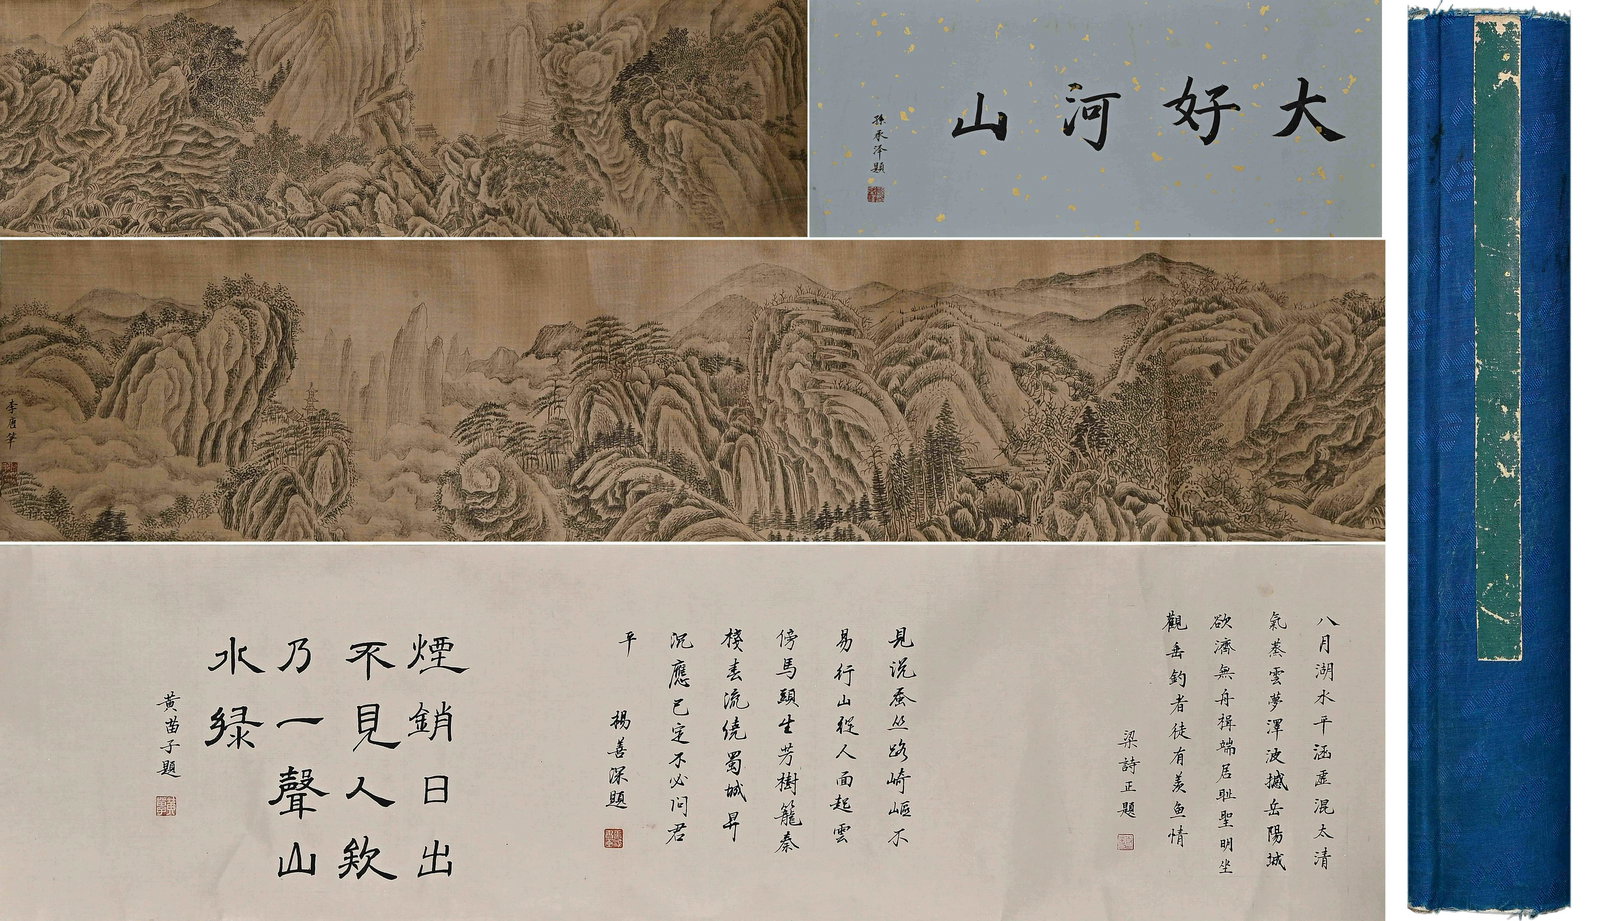 大好河山
孫承澤題
李唐筆
八月湖水平涵虛混太清
氣蒸雲夢澤波撼岳陽城
欲濟無舟楫端居恥聖明坐
觀垂釣者徒有羨魚情
梁詩正題
見說蚕丛路崎嶇不
易行山從人面起雲
傍馬頭生芳樹籠秦
棧春流繞蜀城昇
沉應已定不必问君
平
楊善深題
煙銷日出
不見人欸
乃一聲山
水绿
黄苗子題